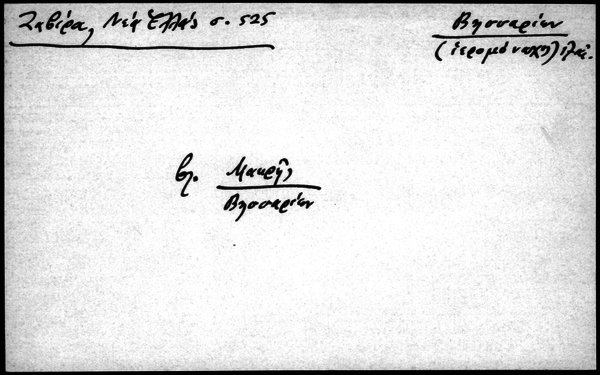 Ζαβίρα, Νέα Ἑλλάς σ. 525
Βησσαρίων
(ἱερομόναχος)
βλ. Μακρῆς
Βησσαρίων